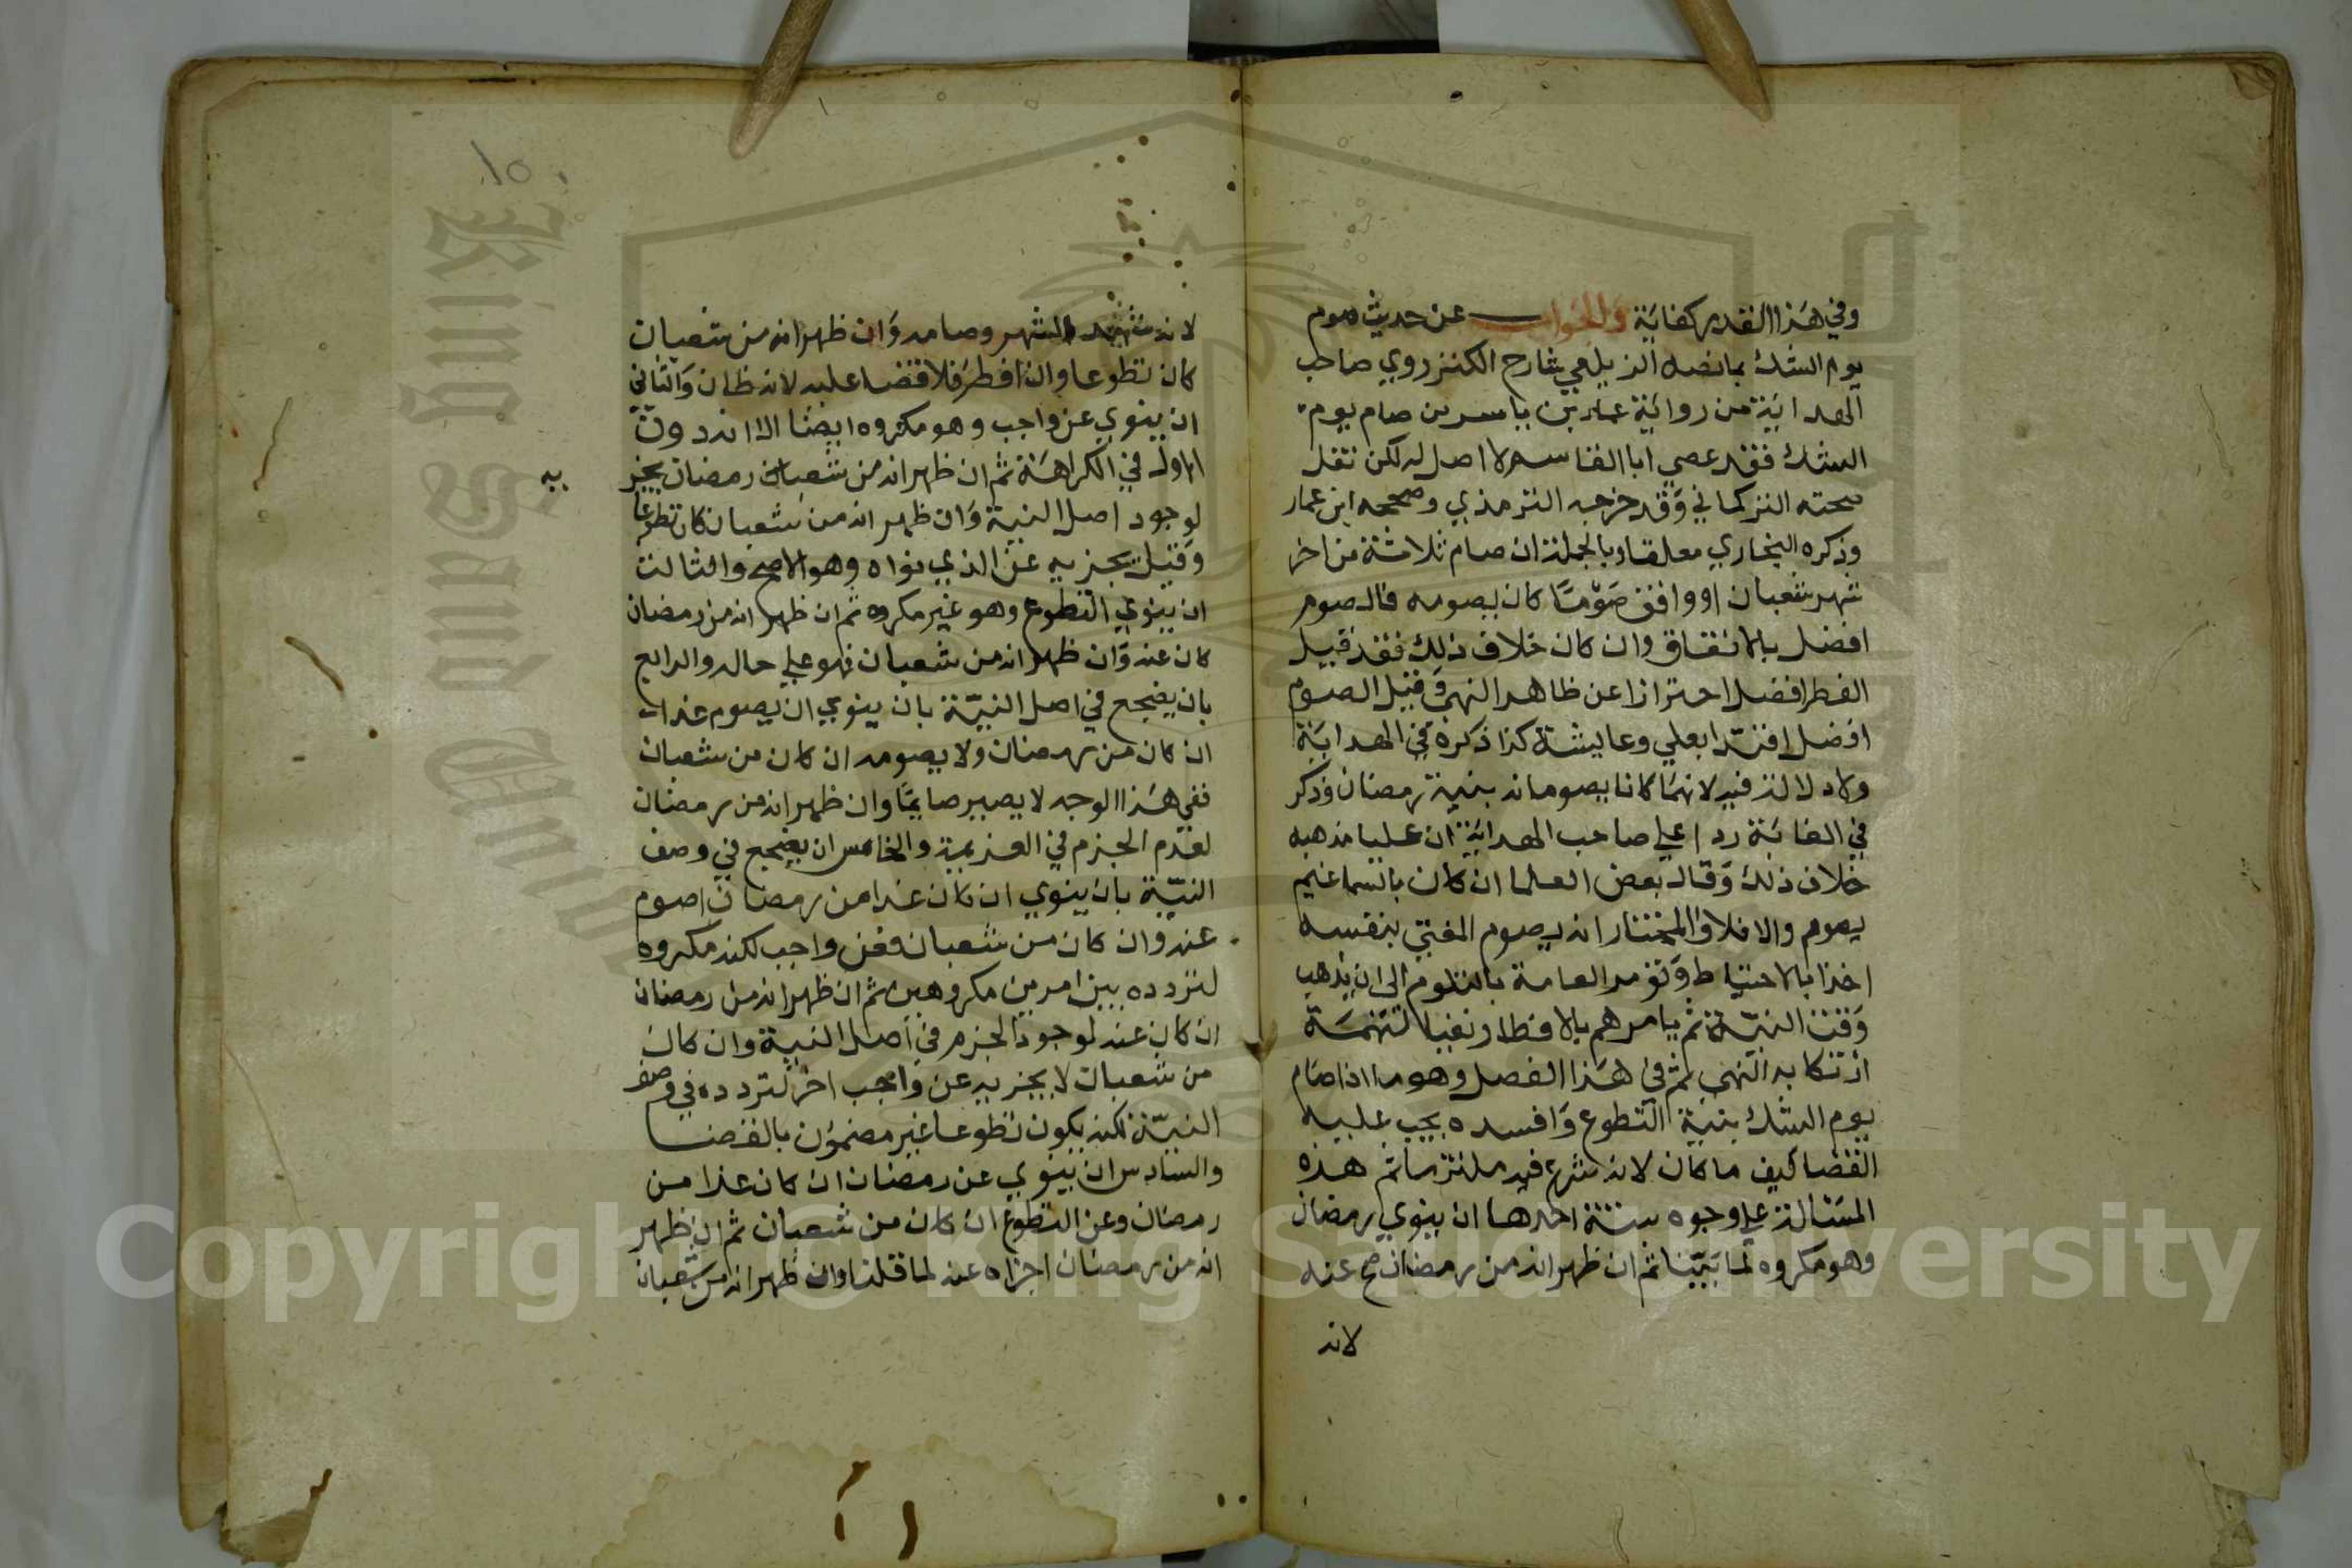 وفي هذا القدر كفاية والجواب عن حديث صوم
يوم الشك بما نصه الزيلعي شارح الكنز روي صاحب
الهداية من رواية عمار بن ياسر من صام يوم
الشك فقد عصي ابا القاسم لا اصل له لكن نقل
صحته التركماني وقد خرجه الترمذي وصححه ابن عمار
وذكره البخاري معلقا وبالجملة ان صام ثلاثة من اخر
شهر شعبان او وافق صوما كان يصومه فالصوم
افضل بالاتفاق وان كان خلاف ذلك فقد قيل
الفطر افضل احترازا عن ظاهر النهي وقيل الصوم
افضل اقتدا بعلي وعايشة كذا ذكره في الهداية
ولا دلالة فيه لانهما كانا يصومانه بنية رمضان وذكر
في الغاية ردا علي صاحب الهداية ان عليا مذهبه
خلاف ذلك وقال بعض العلما ان كان بالسما غيم
يصوم والا فلا والمختار انه يصوم المفتي بنفسه
اخذا بالاحتياط وتؤمر العامة بالتلوم الى ان يذهب
وقت النية ثم يامرهم بالافطار ونفيا لتهمة
ارتكابه النهي ثم في هذا الفصل وهو ما اذا صام
يوم الشك بنية التطوع وافسده يجب عليه
القضا كيف ما كان لانه شرع فيه ملتزما ثم هذه
المسئالة علي وجوه ستة احدها ان ينوي رمضان
وهو مكروه لما بينا ثم ان ظهر انه من رمضان صح عنه
لانه
١٥
لانه شهد الشهر وصامه وان ظهر انه من شعبان
كان تطوعا وان افطر فلا قضا عليه لانه ظان والثاني
ان ينوي عن واجب وهو مكروه ايضا الا انه دون
الاول في الكراهة ثم ان ظهر انه من شعبان رمضان يجز
يه
لوجود اصل النية وان ظهر انه من شعبان كان تطوعا
وقيل يجزيه عن الذي نواه وهو الاصح والثالث
ان ينوي التطوع وهو غير مكروه ثم ان ظهر انه من رمضان
كان عنه وان ظهر انه من شعبان فهو علي حاله والرابع
بان يضجع في اصل النية بان ينوي ان يصوم غدا
ان كان من رمضان ولا يصومه ان كان من شعبان
ففي هذا الوجه لا يصير صايما وان ظهر انه من رمضان
لعدم الجزم في العزيمة والخامس ان يضجع في وصف
النية بان ينوي ان كان غدا من رمضان اصوم
عنه وان كان من شعبان فعن واجب لكنه مكروه
لتردده بين امرين مكروهين ثم ان ظهر انه من رمضان
ان كان عنه لوجود الجزم في اصل النية وان كان
من شعبان لا يجزيه عن واجب اخر لتردده في وصف
النية لكنه يكون تطوعا غير مضمون بالقضا
والسادس ان ينوي عن رمضان ان كان غدا من
رمضان وعن التطوع ان كان من شعبان ثم ان ظهر
انه من رمضان اجزاه عنه لما قلنا وان ظهر انه من شعبان
King Saud University
Copyright © King Saud University